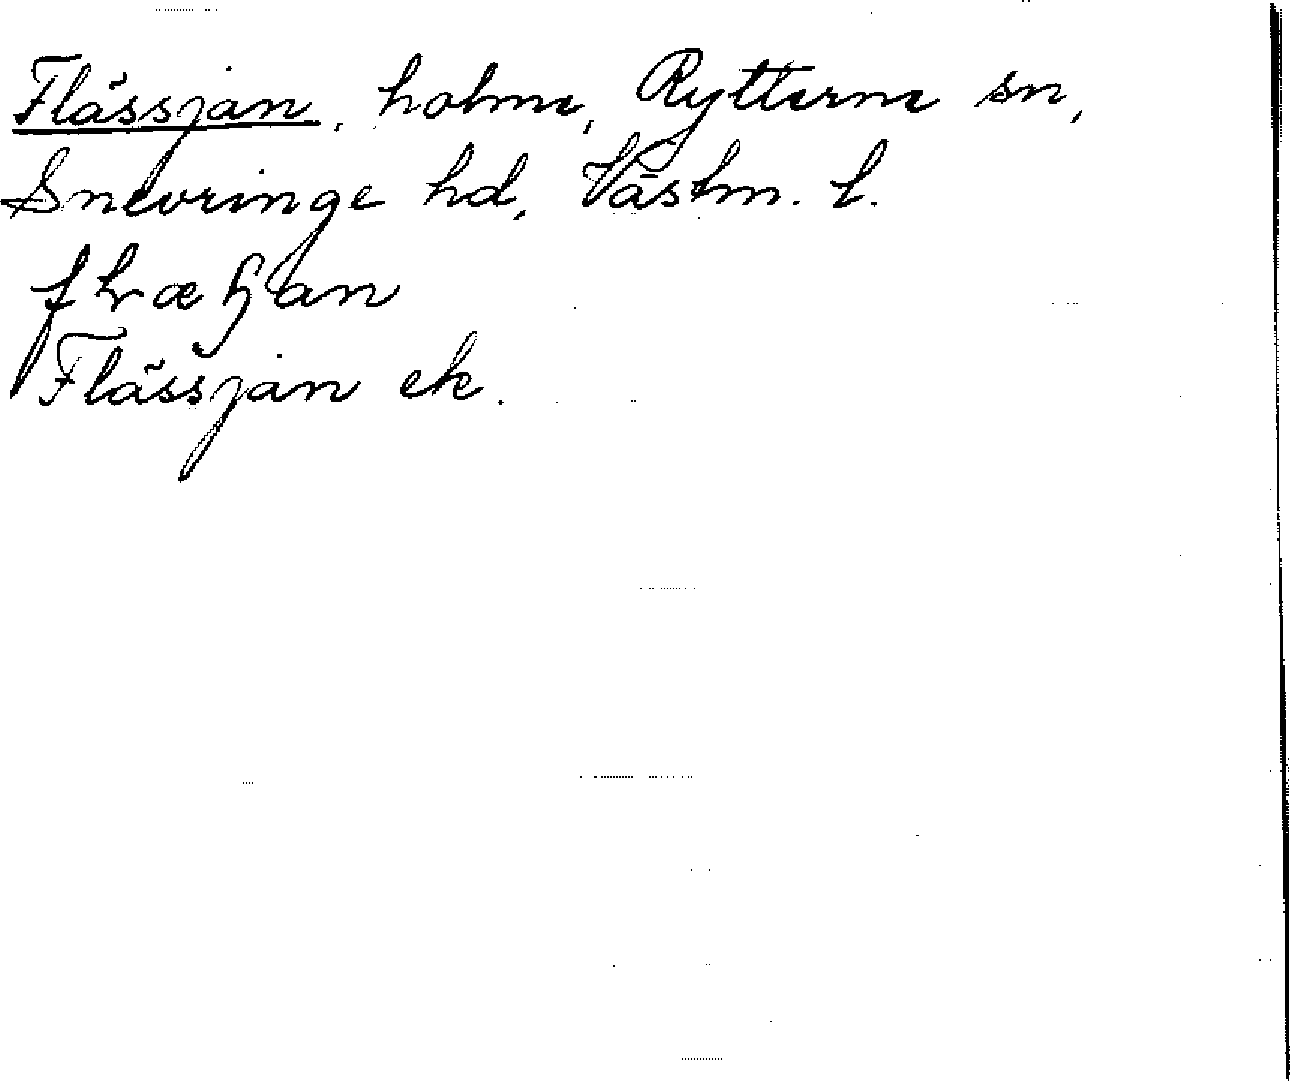 Flässjan, holme, Rytterne sn,
Snevringe hd, Västm. l.
Flässjan ek.